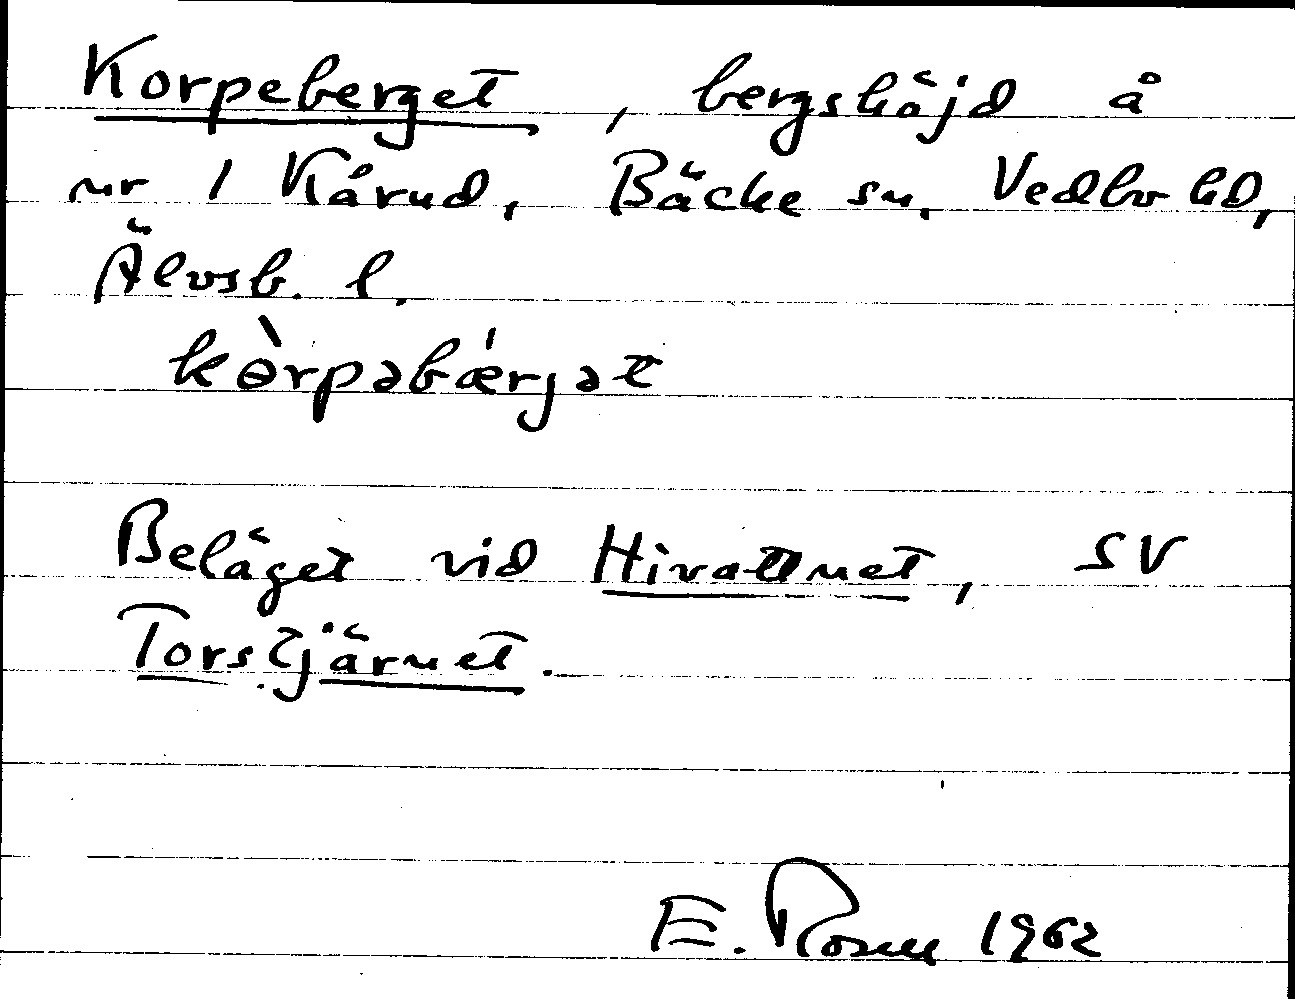 Korpeberget, bergshöjd å
nr 1 Kårud, Bäcke sn, Vedbo hd,
Älvsb. l.
kòrpəbǽrjət
Beläget vid Hivattnet, SV
Torstjärnet.
E. Rosell 1962